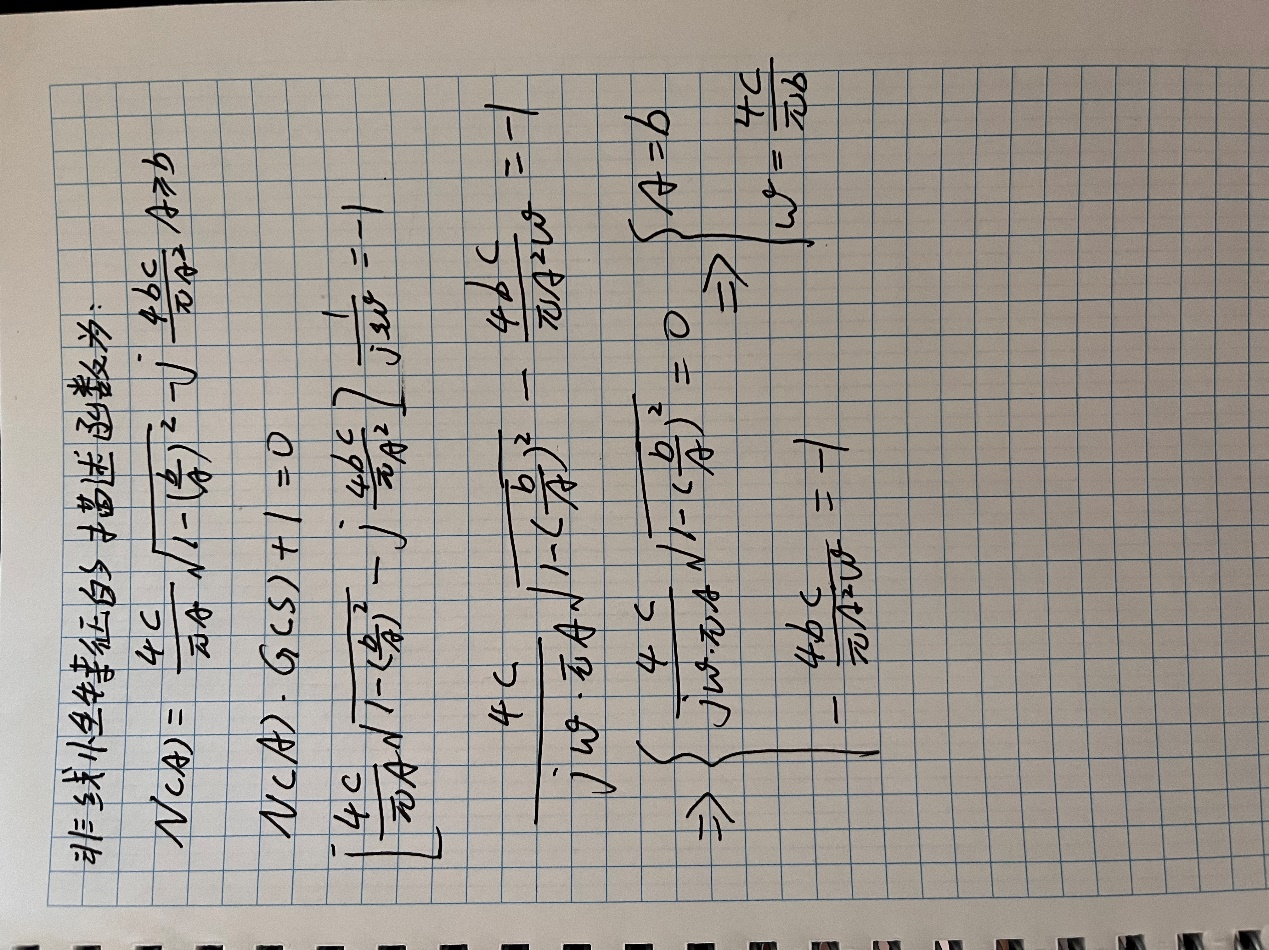 非线性特征的描述函数为:
N(A) = 4C/πA √1-(b/A)² - j 4bC/πA² A≥b
N(A)·G(S)+1=0
[4C/πA √1-(b/A)² - j 4bC/πA²] 1/jω = -1
4C/jω·πA √1-(b/A)² - 4bC/πA²ω = -1
⇒ { 4C/jω·πA √1-(b/A)² = 0
- 4bC/πA²ω = -1
⇒ { A=b
ω = 4C/πb